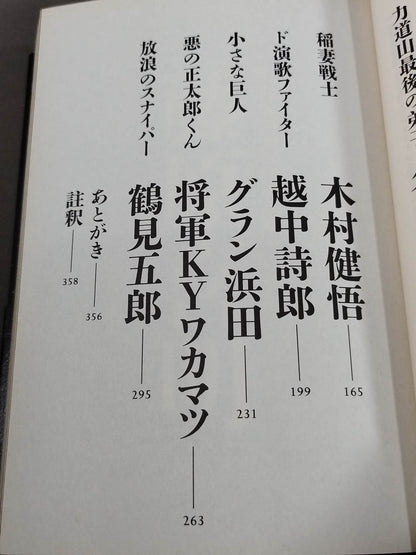 力道山最後の弟
稲妻戦士
木村健悟——165
ド演歌ファイター
越中詩郎——199
小さな巨人
グラン浜田——231
悪の正太郎くん
将軍KYワカマツ——263
放浪のスナイパー
鶴見五郎——295
あとがき——356
註釈——358